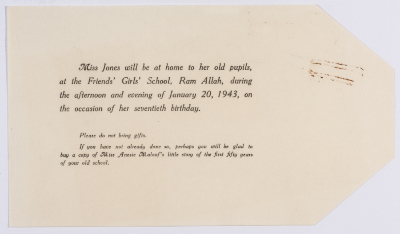 Miss Jones will be at home to her old pupils,
at the Friends' Girls' School, Ram Allah, during
the afternoon and evening of January 20, 1943, on
the occasion of her seventieth birthday.
Please do not bring gifts.
If you have not already done so, perhaps you will be glad to
buy a copy of Miss Annie Malouf's little story of the first fifty years
of your old school.